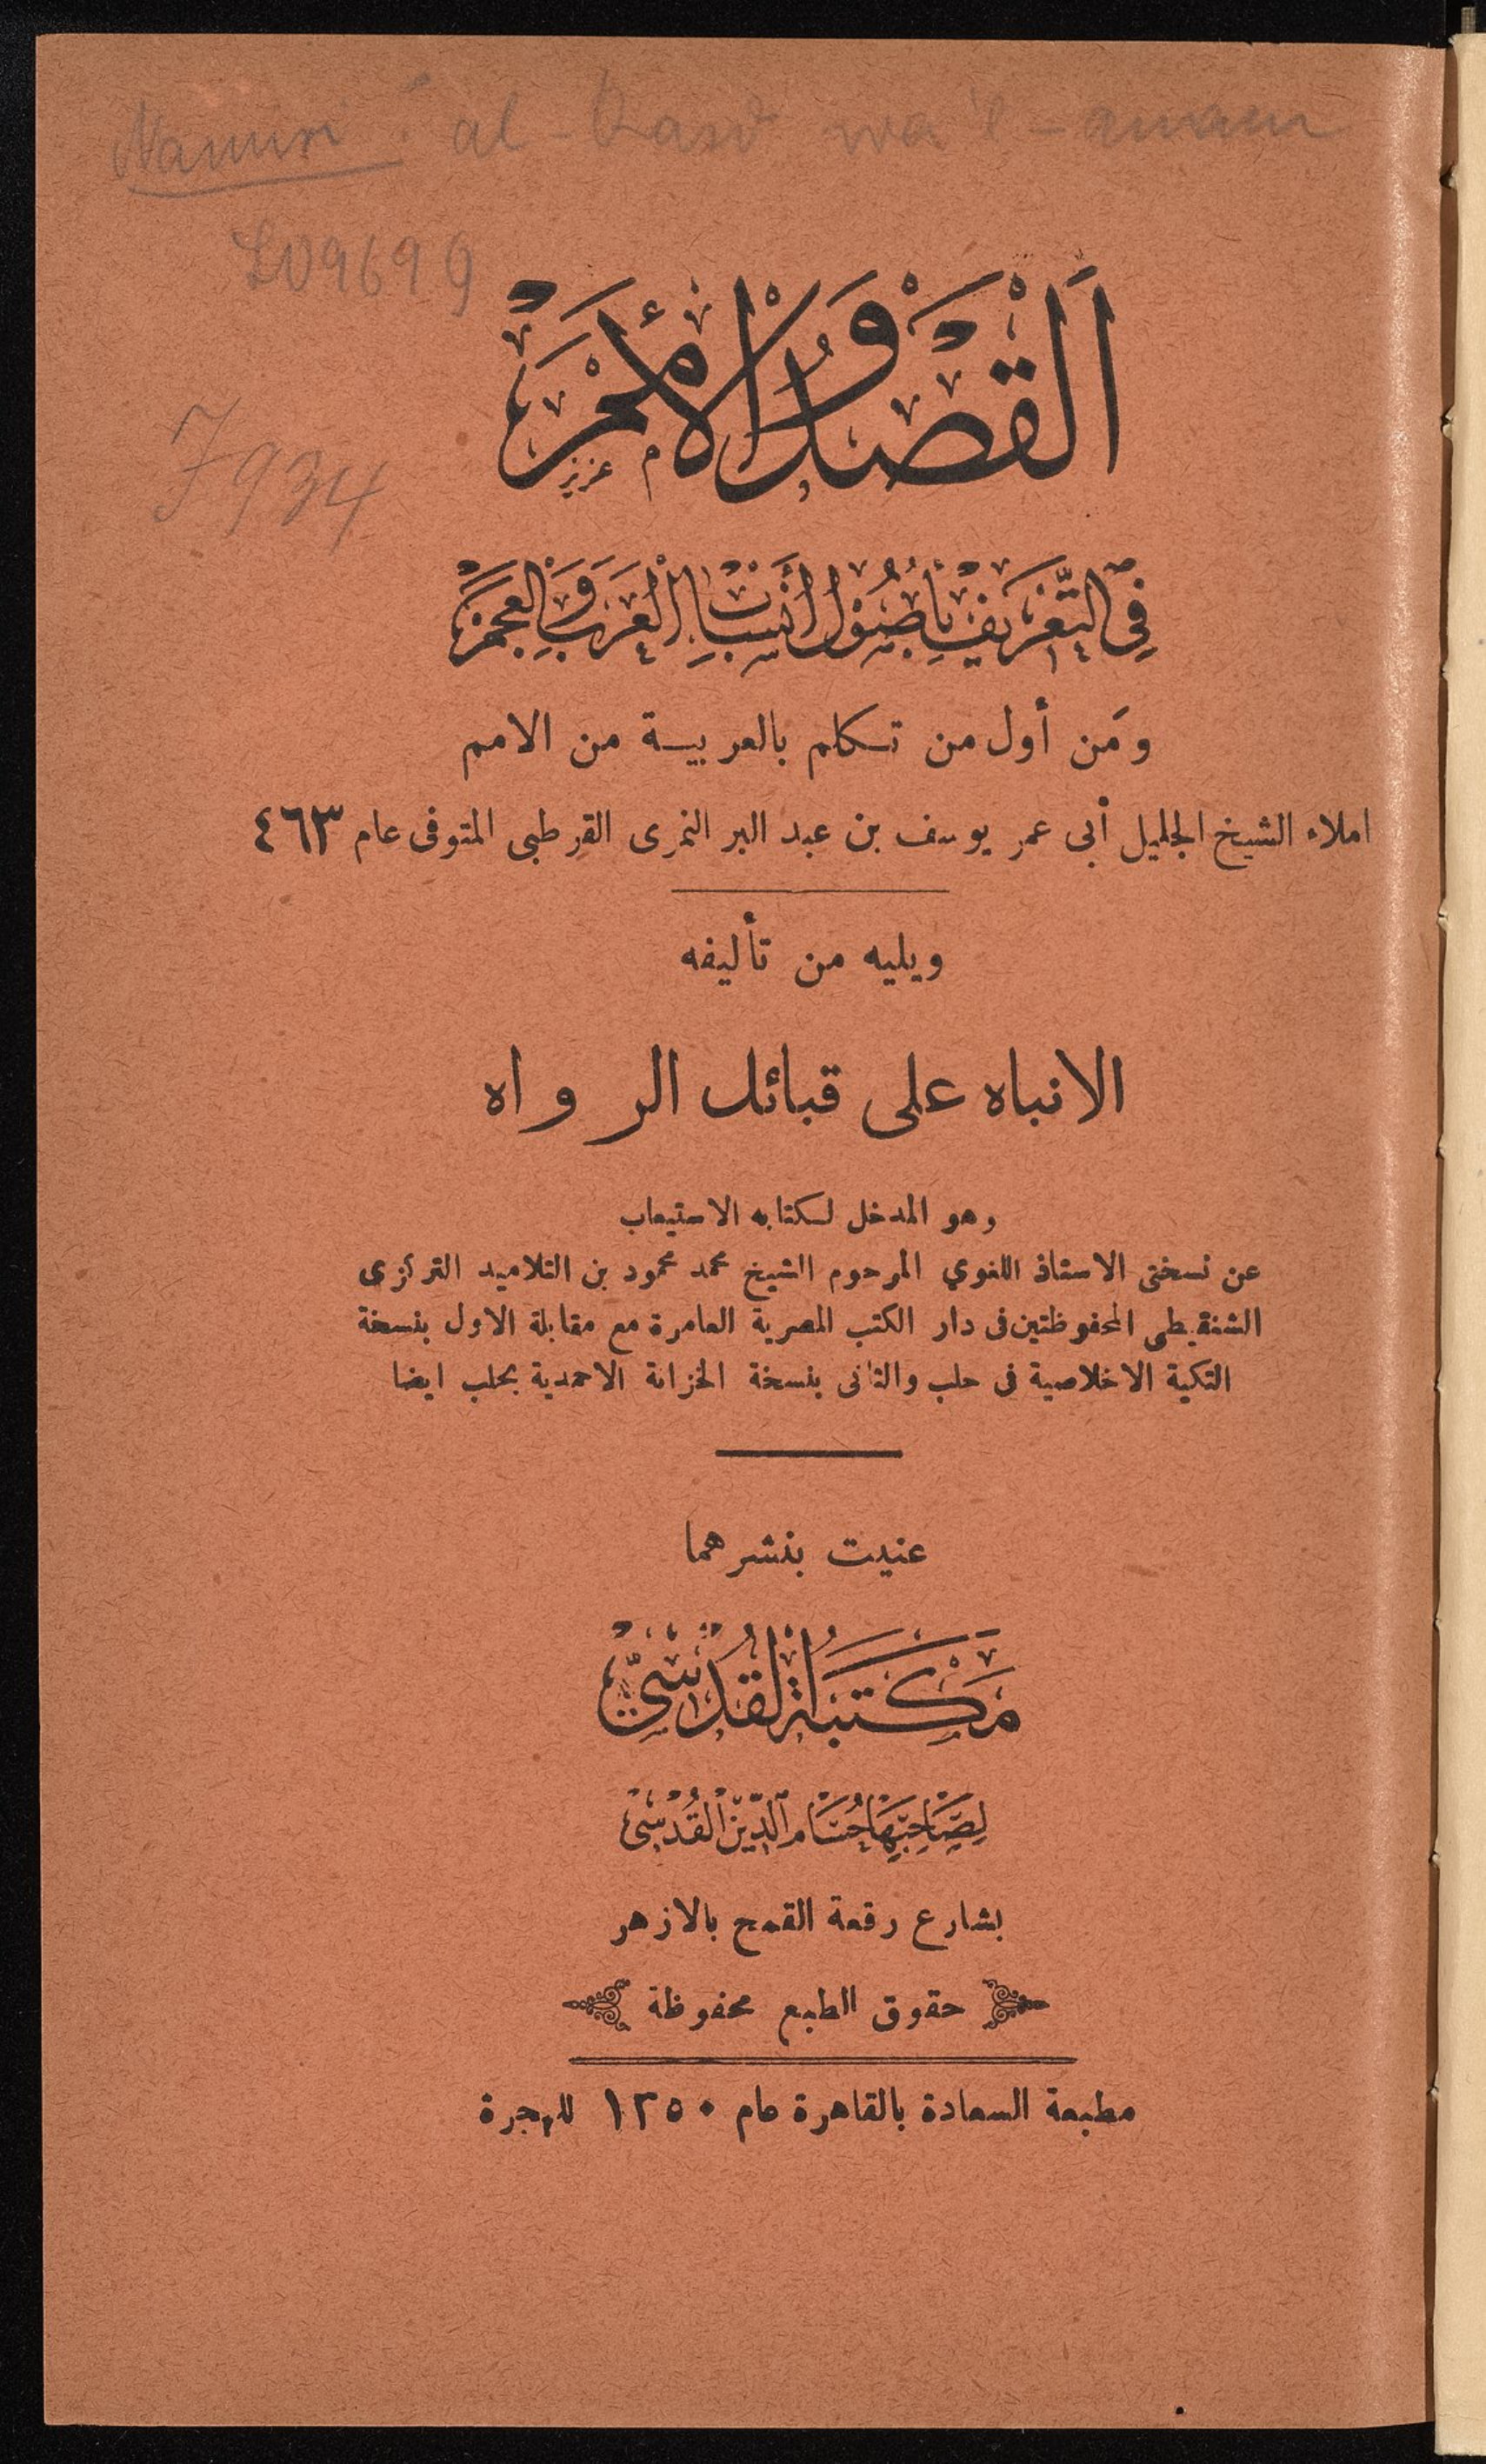 Namiri : al-Qasd wa'l-amam
L09699
7934
اَلْقَصْدُ وَالْأُمَمْ
عزيز
فِى التَّعْرِيفِ بِأُصُوْلِ أَنْسَابِ الْعَرَبِ وَالْعَجَمْ
ومَن أول من تكلم بالعربية من الامم
املاء الشيخ الجليل أبى عمر يوسف بن عبد البر النمرى القرطبى المتوفى عام ٤٦٣
ويليه من تأليفه
الانباه على قبائل الرواه
وهو المدخل لكتابه الاستيعاب
عن نسختى الاستاذ اللغوي المرحوم الشيخ محمد محمود بن التلاميد التركزى
الشنقيطى المحفوظتين فى دار الكتب المصرية العامرة مع مقابلة الاول بنسخة
التكية الاخلاصية فى حلب والثانى بنسخة الخزانة الاحمدية بحلب ايضا
عنيت بنشرهما
مَكْتَبَةُ الْقُدْسِيّ
لِصَاحِبِهَا حُسَامِ الدِّيْنِ الْقُدْسِىْ
بشارع رقعة القمح بالازهر
حقوق الطبع محفوظة
مطبعة السعادة بالقاهرة عام ١٣٥٠ للهجرة